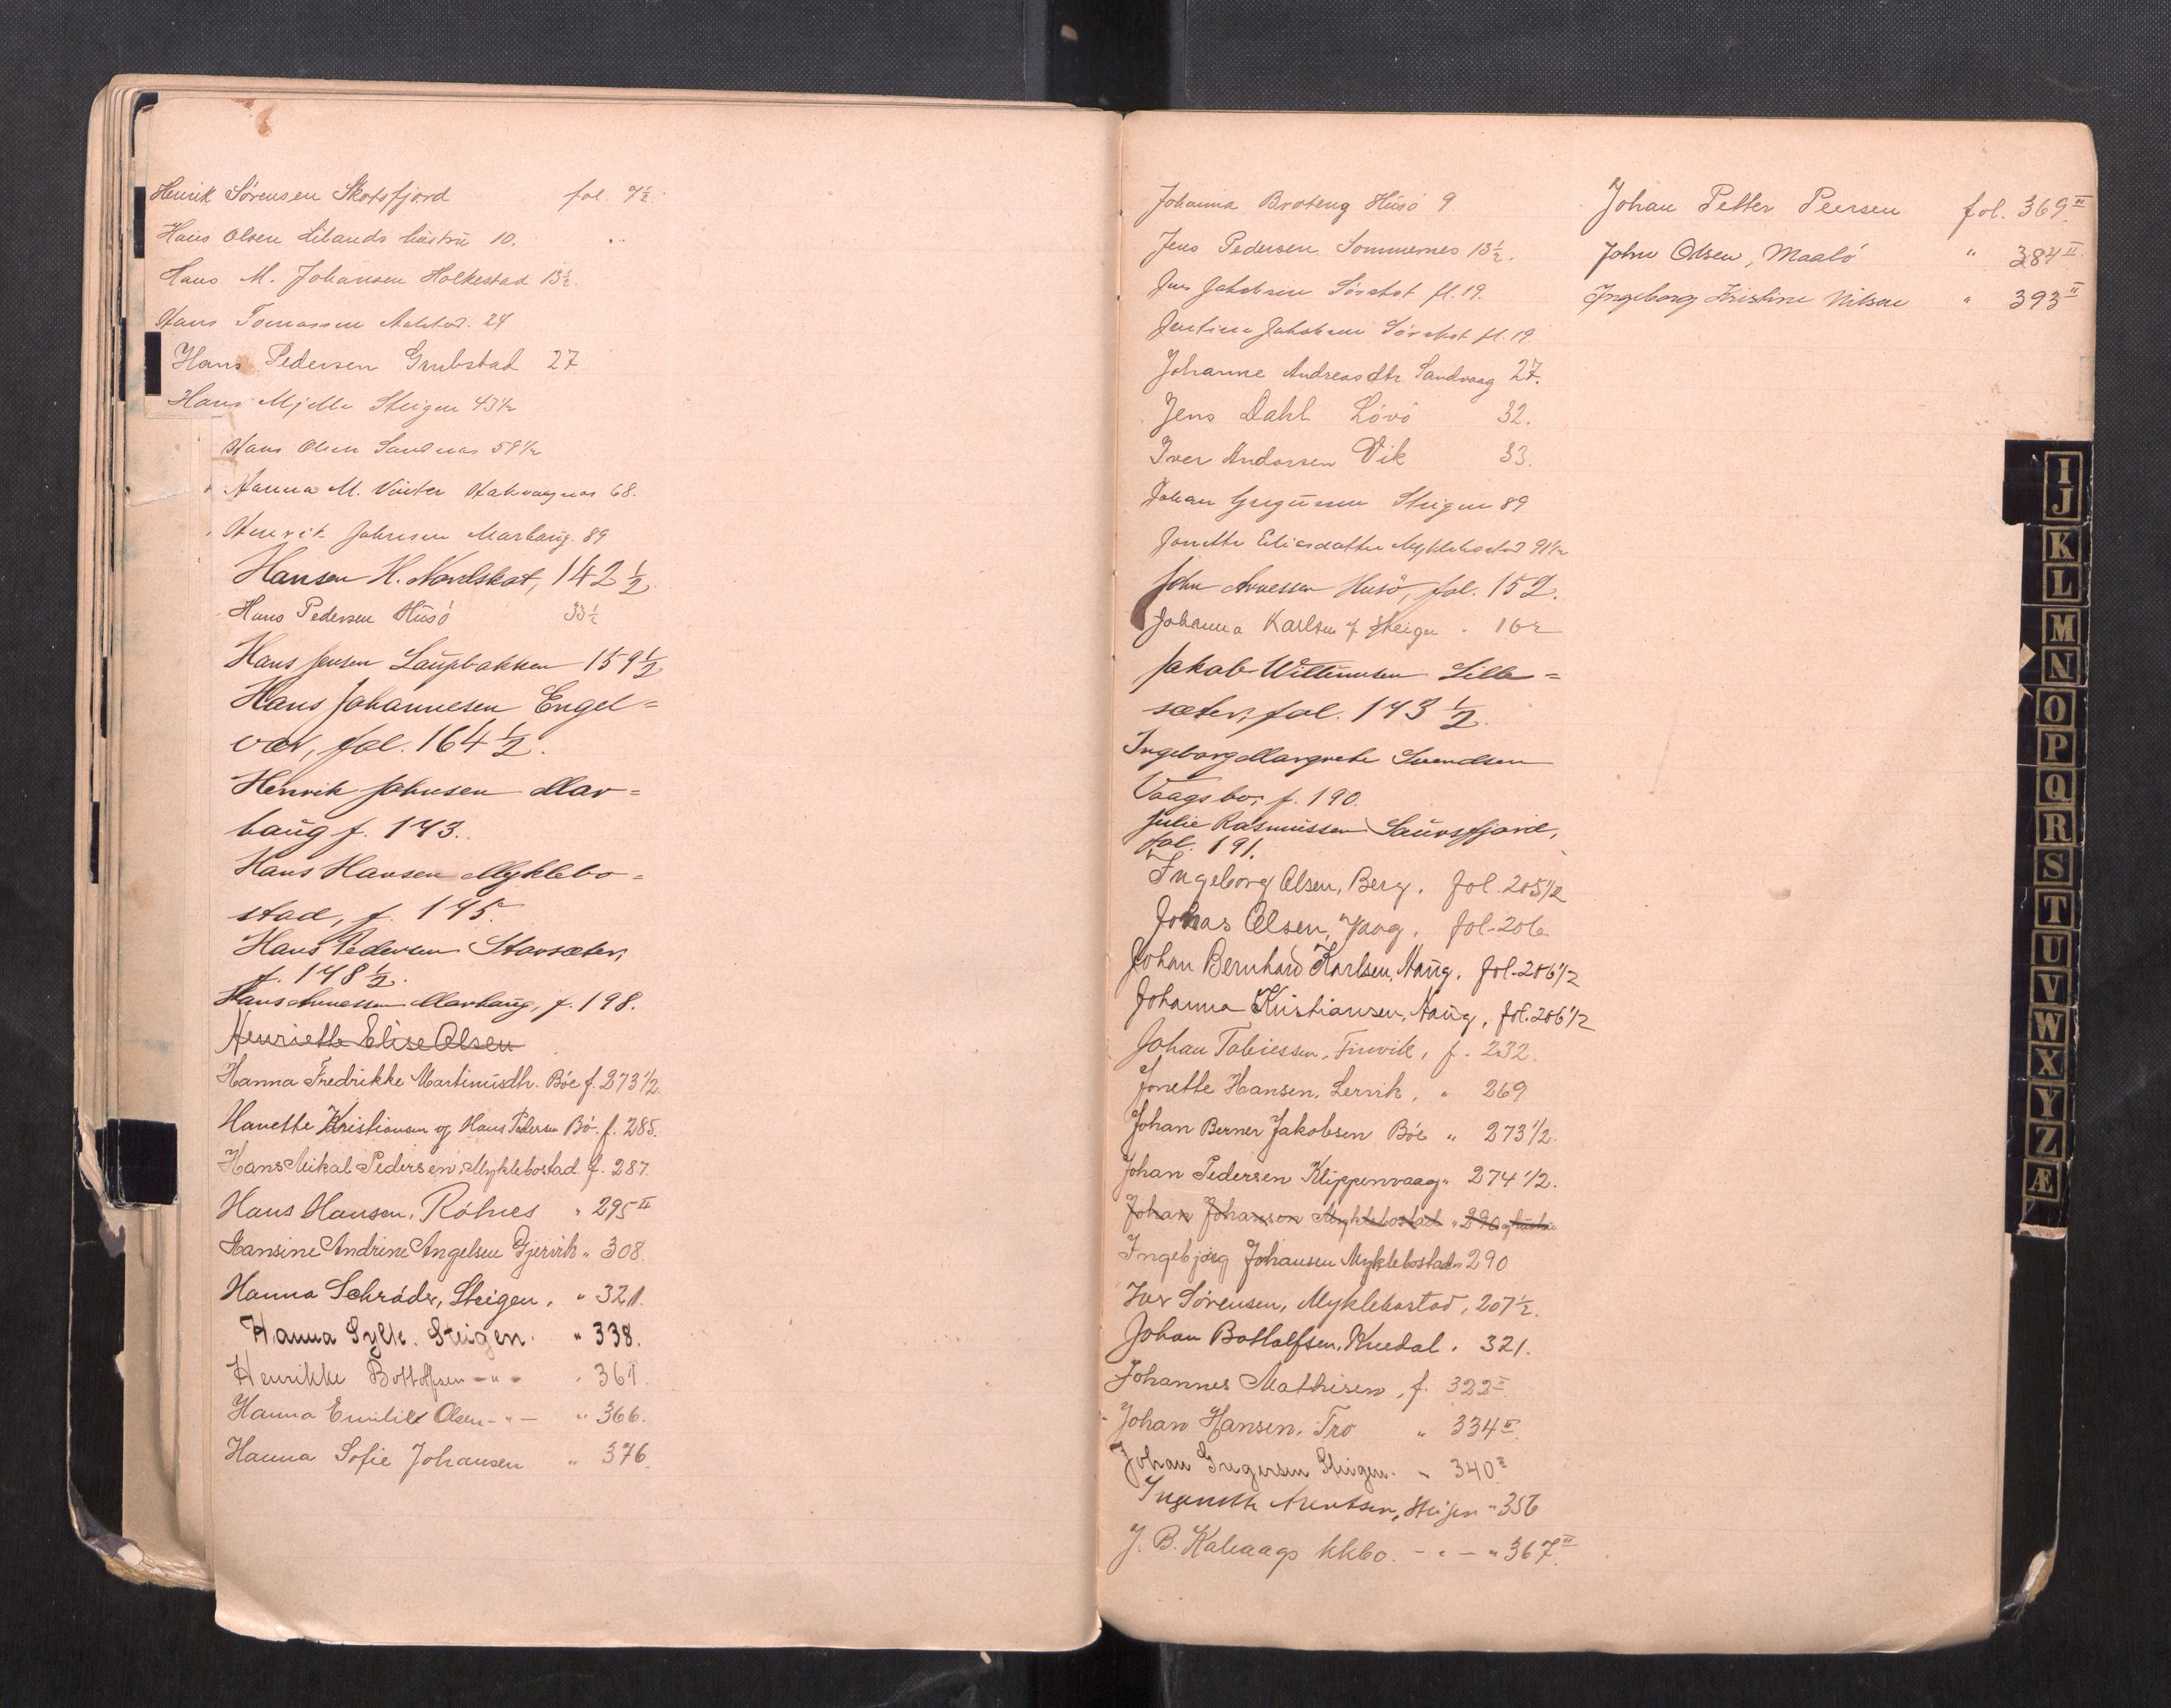 Henrik Sørensen Skotsfjord fol. 7½
Hans Olsen Libands hustru 10.
Hans M. Johansen Holkestad 13½
Hans Tomassen 24
Hans Pedersen Grubstad 27
Hans Mjelle Steigen 43½
Hans Olsen Sandnes 59½
Hanna M. Vinter 68.
Henrik Johnsen Marhaug. 89
Hansen H. Nordskot, 142½
Hans Pedersen Husö 33½
Hans Jensen Laupbakken 159½
Hans Johannesen Engel=
vær, fol. 164½.
Henrik Johnsen Mar=
haug f. 143.
Hans Hansen Myklebo=
stad, f. 145.
Hans Pedersen Storsæter,
f. 148½.
Hans Arnessen Marhaug, f. 198.
Henriette Elise Olsen
Hanna Fredrikke Martinusdtr. Böe f. 273½.
Hanette Kristiansen og Hans Pedersen Bö. f. 285.
Hans Mikal Pedersen, Myklebostad. f. 287.
Hans Hansen, Röhnes " 295 II
Hansine Andrine Angelsen Gjervik " 308.
Hanna Schröder, Steigen. " 321.
Hanna Sylte. Steigen. " 338.
Henrikke Bottolfsen - " - " 361.
Hanna Emilie Olsen - " - " 366.
Hanna Sofie Johansen " 376.
Johanna Broteng Husö 9
Jens Pedersen Sommernes 13½.
Jens Jakobsen Sørskot fl. 19.
Jentine Jakobsen Sørskot fl. 19
Johanne Andreasdtr. Sandvaag 27.
Jens Dahl Lövö 32.
Iver Andorsen Vik 33.
Johan Gregussen Steigen 89
Jonette Eliasdatter Myklebostad 91½
John Arnessen Husö, fol. 152.
Johanna Karlsen f Steigen " 162
Jakob Willumsen Lille=
sæter, fol. 143½.
Ingeborg Margrete Svendsen
Vaagsbo, f. 190.
Julie Rasmussen Saursfjord,
fol. 191.
Ingeborg Olsen, Berg. fol. 205½
Johas Olsen, Vaag. fol. 206
Johan Bernhard Karlsen, Haug. fol. 206½
Johanna Kristiansen, Haug, fol. 206½
Johan Tobiessen, Finvik, f. 232.
Jonette Hansen, Lervik, " 269
Johan Berner Jakobsen Böe " 273½.
Johan Pedersen Klippenvaag " 274½.
Johan Johansen Myklebostad " 290 hustru
Ingebjørg Johansen Myklebostad " 290
Iver Sörensen, Myklebostad, 207½.
Johan Bottolfsen, Knedal. 321.
Johannes Mathisen, f. 322 II
Johan Hansen, Tro " 334 II
Johan Gregersen Steigen. " 340 II
Inganette Arentsen, Steigen " 356
J. B. - " - " 367 II
Johan Petter Peersen fol. 369 II
John Olsen, Maalö " 384 II
Ingeborg Kristine Nilsen " 393 II
I
J
K
L
M
N
O
P
Q
R
S
T
U
V
W
X
Y
Z
Æ